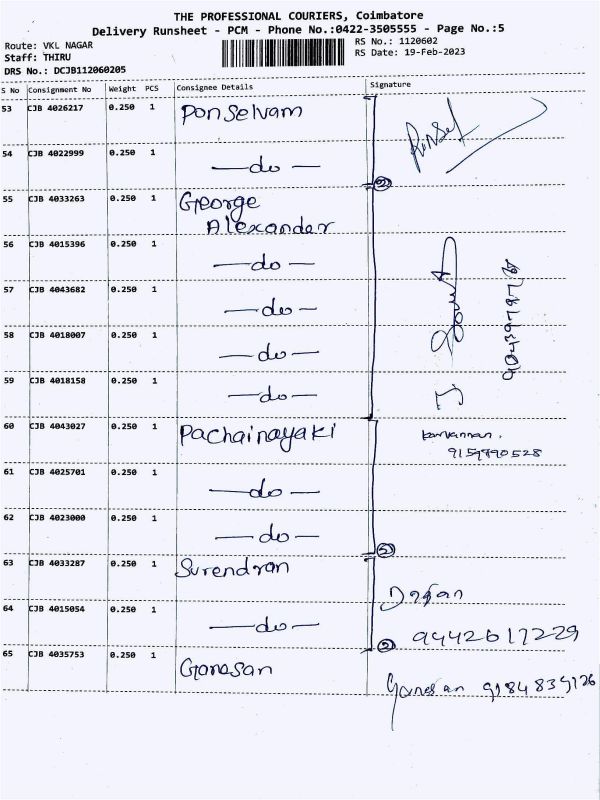 THE PROFESSIONAL COURIERS, Coimbatore
Delivery Runsheet - PCM - Phone No.:0422-3505555 - Page No.:5
Route: VKL NAGAR
RS No.: 1120602
Staff: THIRU
RS Date: 19-Feb-2023
DRS No.: DCJB112060205
S No Consignment No Weight PCS Consignee Details Signature
53 CJB 4026217 0.250 1 Ponselvam
54 CJB 4022999 0.250 1 —do—
②
55 CJB 4033263 0.250 1 George
Alexander
56 CJB 4015396 0.250 1 —do—
57 CJB 4043682 0.250 1 —do—
58 CJB 4018007 0.250 1 —do—
59 CJB 4018158 0.250 1 —do—
60 CJB 4043027 0.250 1 Pachainayaki
61 CJB 4025701 0.250 1 —do—
62 CJB 4023000 0.250 1 —do—
63 CJB 4033287 0.250 1 Surendran
64 CJB 4015054 0.250 1 —do—
② 9442617229
65 CJB 4035753 0.250 1 Ganasan
Ganesan 9184839126